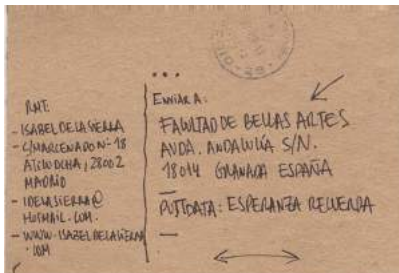 RMT.
- ISABEL DE LA SIERRA
- C/MARCENADO Nº 18
ÁTICO DCHA, 28002
MADRID
- IDELASIERRA@
HOTMAIL.COM.
- WWW.ISABELDELASIERRA
.COM
ENVIAR A:
FACULTAD DE BELLAS ARTES
AVDA. ANDALUCÍA S/N.
18014 GRANADA ESPAÑA
POSTDATA: ESPERANZA RECUERDA